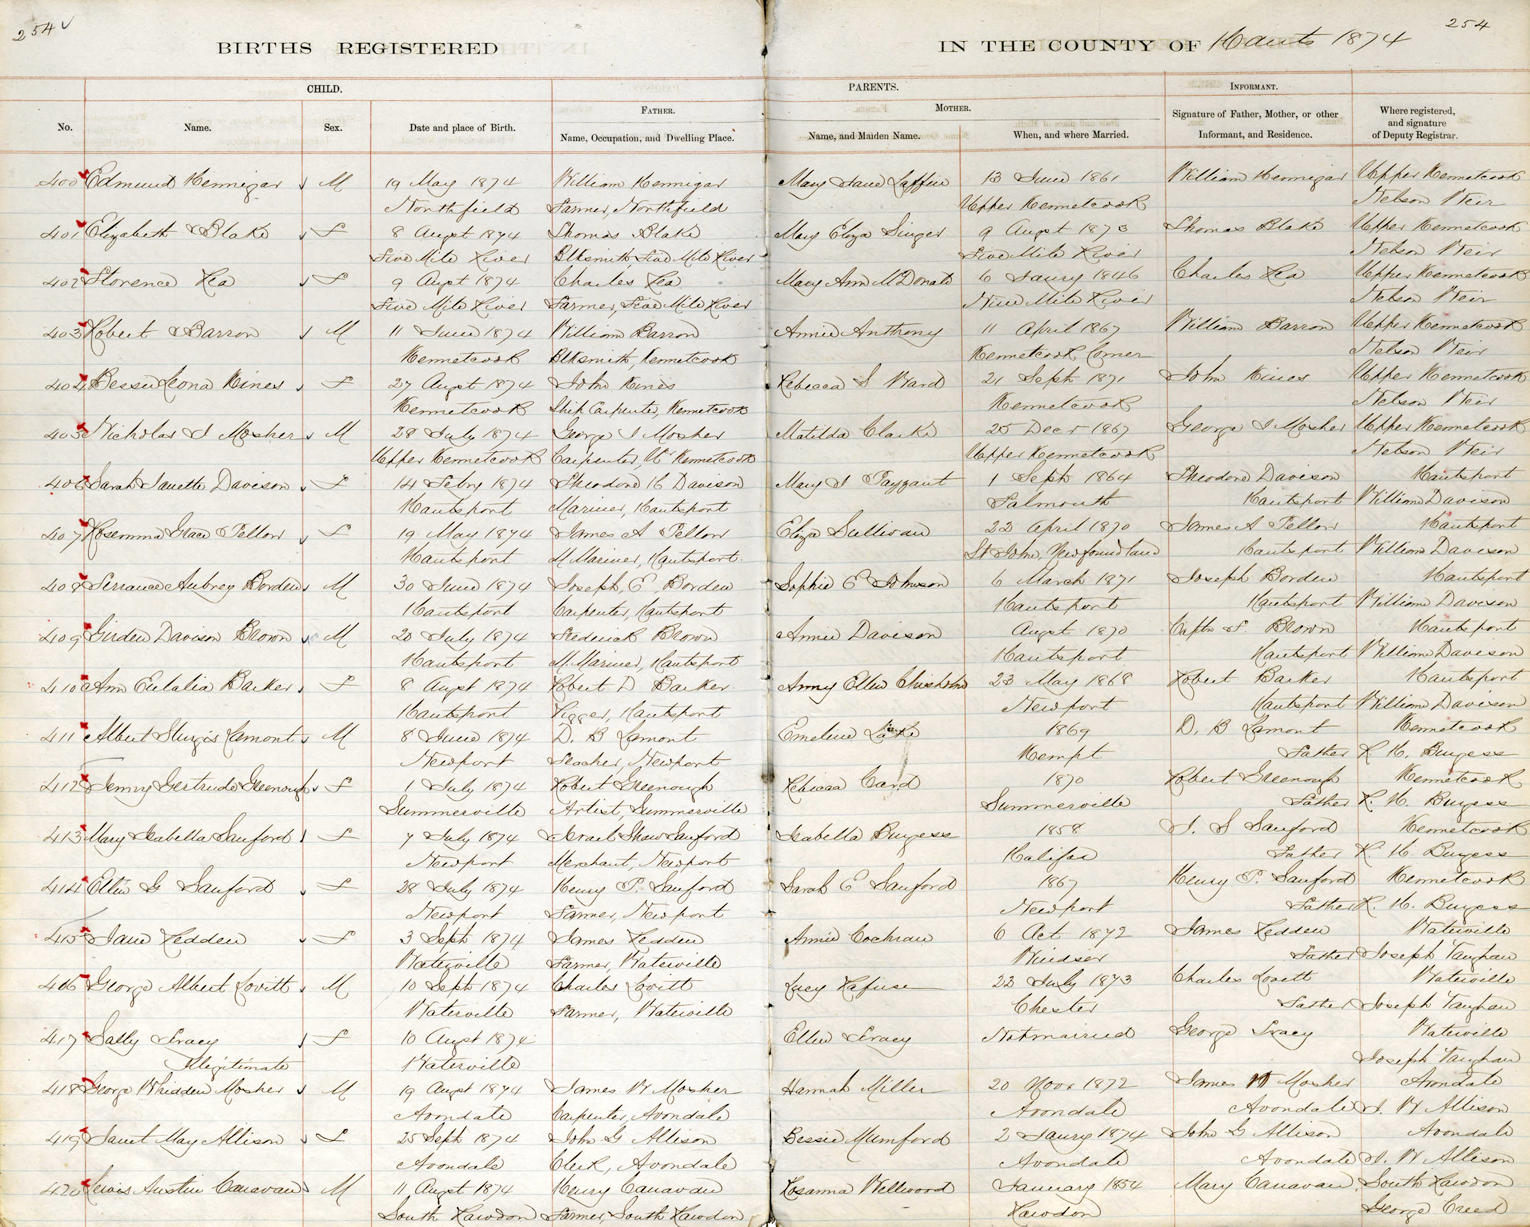 254 ✓
254
BIRTHS REGISTERED IN THE COUNTY OF Hants 1874
CHILD. PARENTS. INFORMANT.
FATHER. MOTHER.
No. Name. Sex. Date and place of Birth. Name, Occupation, and Dwelling Place. Name, and Maiden Name. When, and where Married. Signature of Father, Mother, or other Informant, and Residence. Where registered, and signature of Deputy Registrar.
400 Edmund Hennigar M 19 May 1874 William Hennigar Mary Jane Laffin 13 June 1861 William Hennigar Upper Kennetcook
Northfield Farmer, Northfield Upper Kennetcook Nelson Weir
401 Elizabeth Blake F 8 Augst 1874 Thomas Blake Mary Eliza Singer 9 Augst 1873 Thomas Blake Upper Kennetcook
Five Mile River Blksmith Five Mile River Five Mile River Nelson Weir
402 Florence Lea F 9 Augst 1874 Charles Lea Mary Ann McDonald 6 Jaury 1846 Charles Lea Upper Kennetcook
Five Mile River Farmer, Five Mile River Nine Mile River Nelson Weir
403 Robert Barron M 11 June 1874 William Barron Annie Anthony 11 April 1867 William Barron Upper Kennetcook
Kennetcook Blksmith, Kennetcook Kennetcook Corner Nelson Weir
404 Bessie Leona Hines F 27 Augst 1874 John Hines Rebecca S Ward 21 Sept 1871 John Hines Upper Kennetcook
Kennetcook Ship Carpenter, Kennetcook Kennetcook Nelson Weir
405 Nicholas I Mosher M 28 July 1874 George I Mosher Matilda Clarke 25 Decr 1867 George I Mosher Upper Kennetcook
Upper Kennetcook Carpenter, U Kennetcook Upper Kennetcook Nelson Weir
406 Sarah Janette Davison F 14 Febry 1874 Theodore H Davison Mary I Payzant 1 Sept 1864 Theodore Davison Hantsport
Hantsport Mariner, Hantsport Falmouth Hantsport William Davison
407 Rosemma Grace Fellow F 19 May 1874 James A Fellow Eliza Sullivan 22 April 1870 James A Fellow Hantsport
Hantsport M Mariner, Hantsport St John, Newfoundland Hantsport William Davison
408 Terrance Aubrey Borden M 30 June 1874 Joseph E Borden Sophie E Johnson 6 March 1871 Joseph Borden Hantsport
Hantsport Carpenter, Hantsport Hantsport Hantsport William Davison
409 Girden Davison Brown M 20 July 1874 Frederick Brown Annie Davison Augst 1870 Captn F Brown Hantsport
Hantsport M Mariner, Hantsport Hantsport Hantsport William Davison
410 Ann Eulalia Barker F 8 Augst 1874 Robert D Barker Anny Ellen Chisholm 23 May 1868 Robert Barker Hantsport
Hantsport Rigger, Hantsport Newport Hantsport William Davison
411 Albert Sturgis Lamont M 8 June 1874 D. B Lamont Emeline Lake 1869 D. B Lamont Kennetcook
Newport Teacher, Newport Kempt Father R. H. Burgess
412 Jenny Gertrude Greenough F 1 July 1874 Robert Greenough Rebecca Card 1870 Robert Greenough Kennetcook
Summerville Artist, Summerville Summerville Father R. H. Burgess
413 Mary Isabella Sanford F 7 July 1874 Israel Shaw Sanford Isabella Burgess 1858 I. S Sanford Kennetcook
Newport Merchant, Newport Halifax Father R. H. Burgess
414 Ettie G Sanford F 28 July 1874 Henry P. Sanford Sarah E Sanford 1867 Henry P. Sanford Kennetcook
Newport Farmer, Newport Newport Father R. H. Burgess
415 Jane Redden F 3 Sept 1874 James Redden Annie Cochran 6 Oct 1872 James Redden Waterville
Waterville Farmer, Waterville Windsor Father Joseph Vaughan
416 George Albert Lovitt M 10 Sept 1874 Charles Lovitt Lucy Rafuse 22 July 1873 Charles Lovitt Waterville
Waterville Farmer, Waterville Chester Father Joseph Vaughan
417 Sally Tracy F 10 Augst 1874 Ellen Tracy Not married George Tracy Waterville
Illegitimate Waterville Joseph Vaughan
418 George Whidden Mosher M 19 Augst 1874 James W Mosher Hannah Miller 20 Novr 1872 James W Mosher Avondale
Avondale Carpenter, Avondale Avondale Avondale J. W Allison
419 Janet May Allison F 25 Sept 1874 John G Allison Bessie Mumford 2 Jaury 1874 John G Allison Avondale
Avondale Clerk, Avondale Avondale Avondale J. W Allison
420 Lewis Austin Canavan M 11 Augst 1874 Henry Canavan Rosanna Wellwood January 1854 Mary Canavan South Rawdon
South Rawdon Farmer, South Rawdon Rawdon George Creed